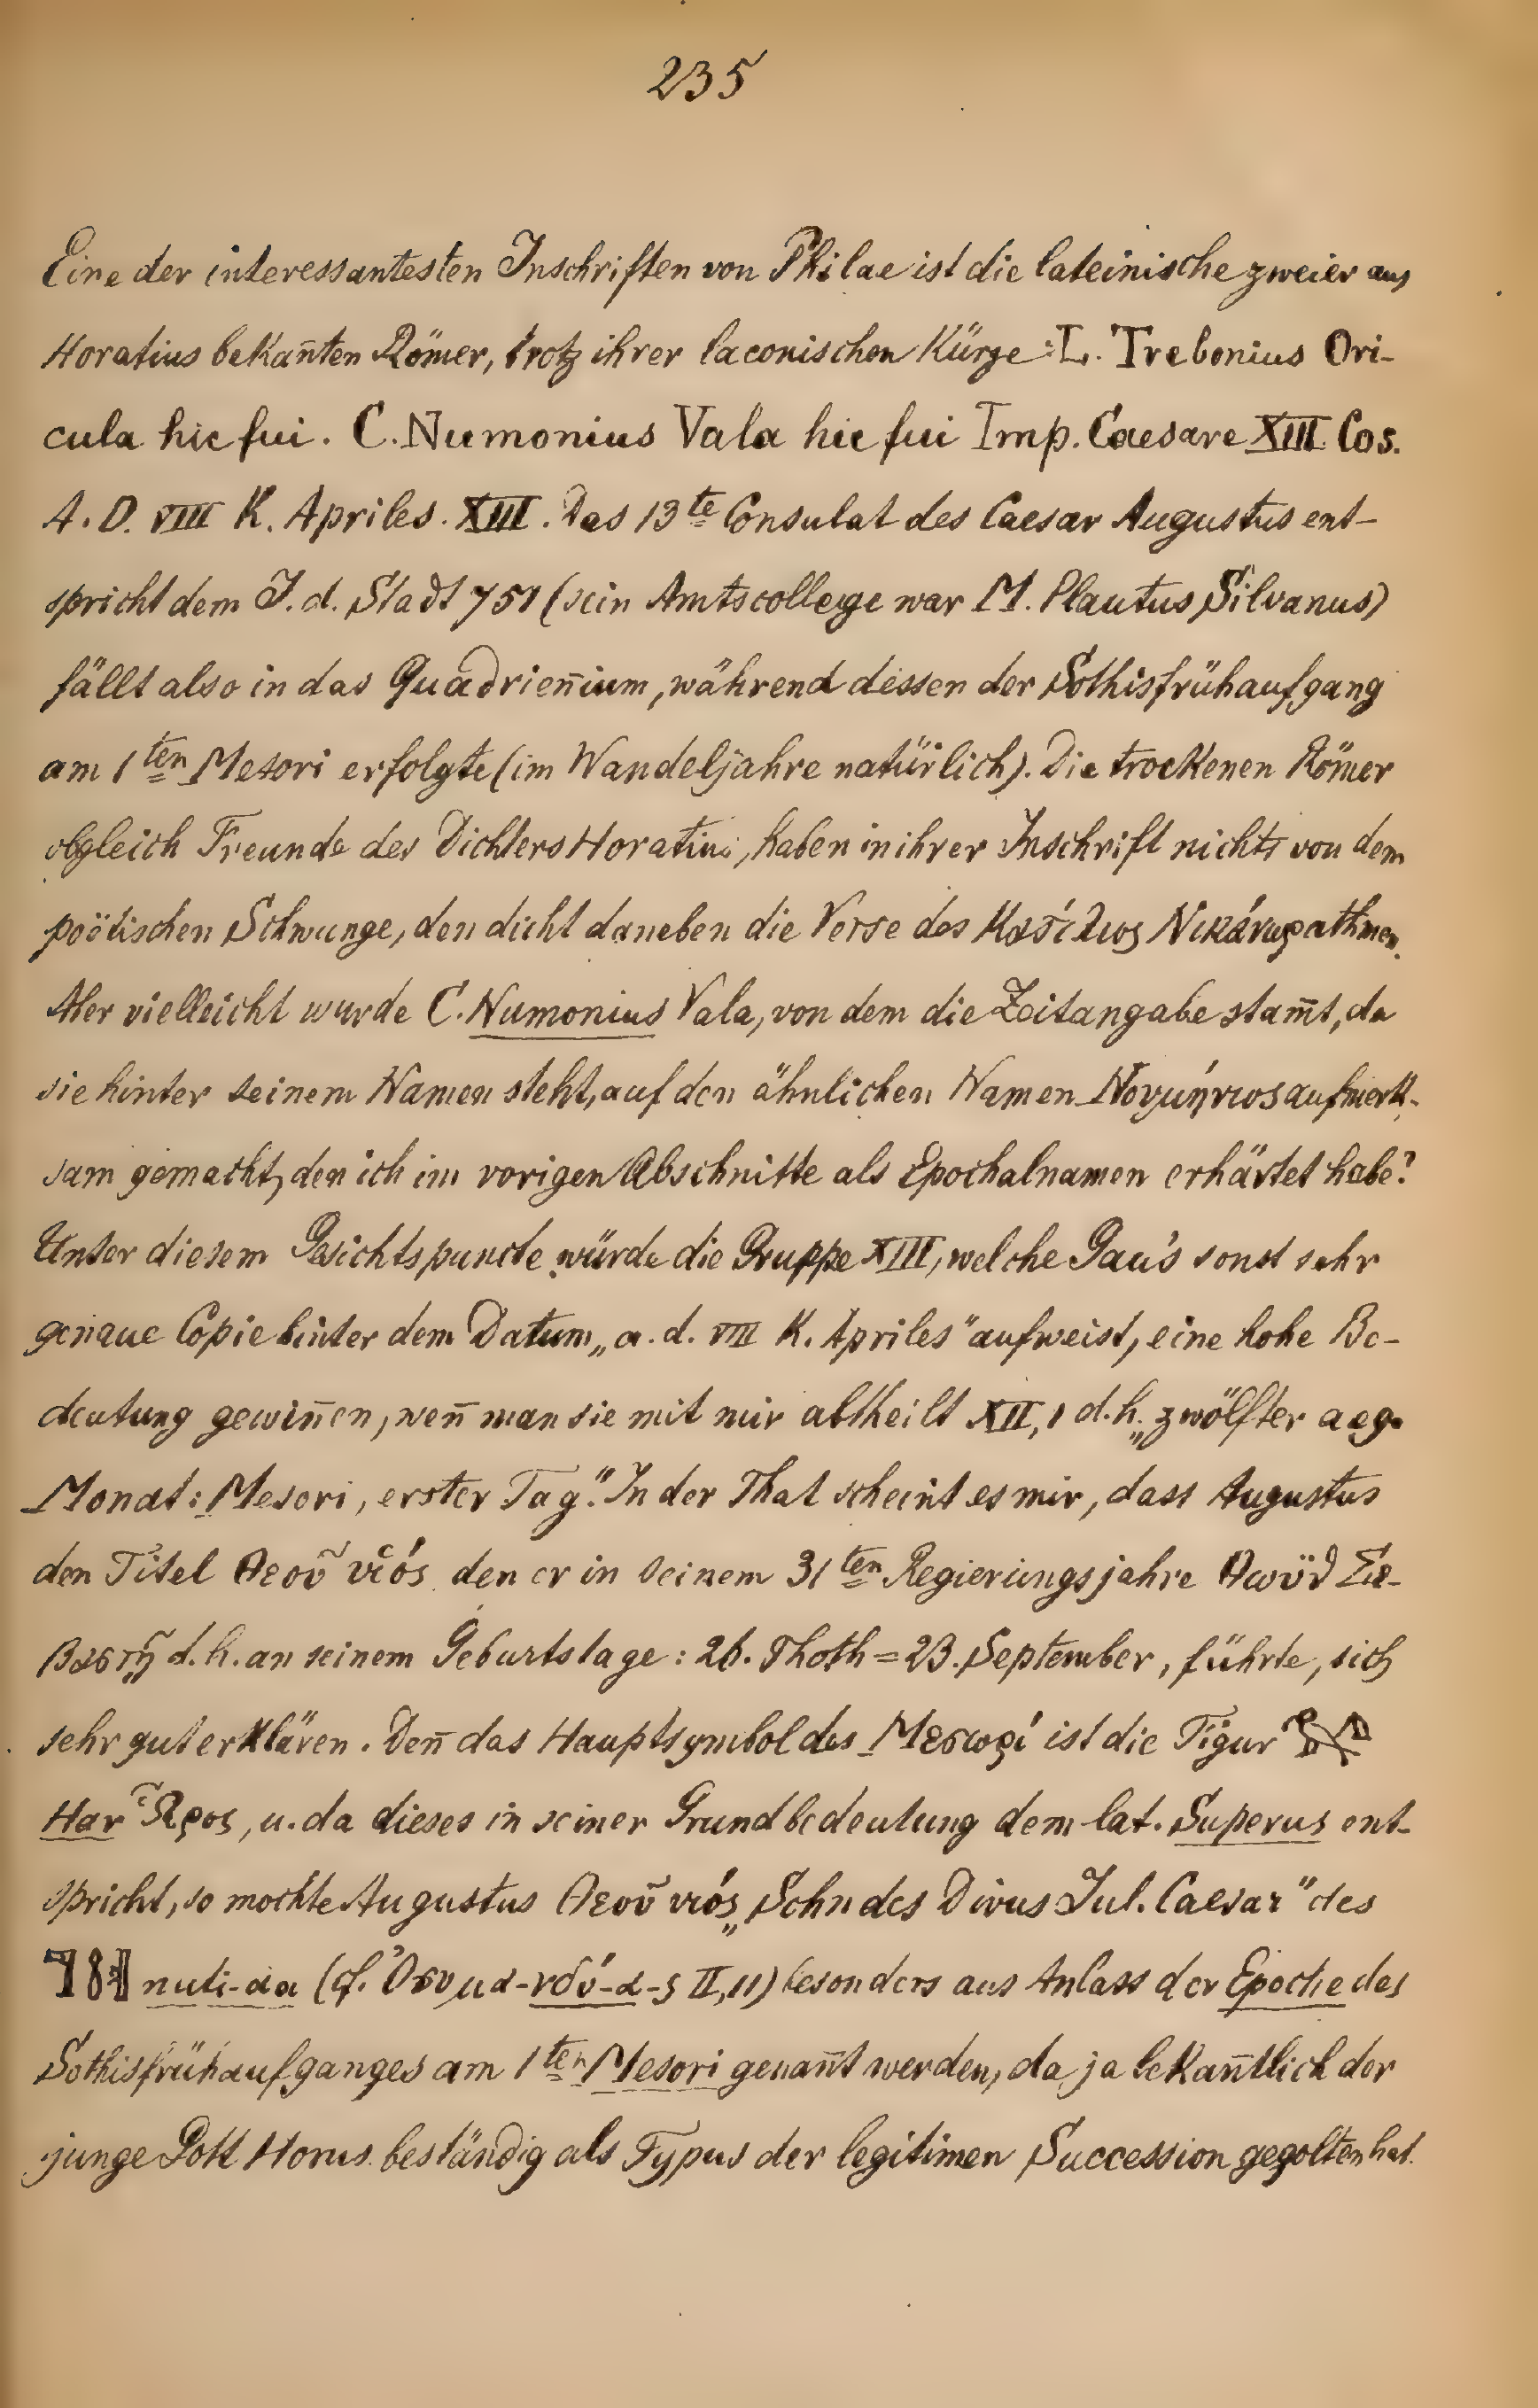 235
Eine der interessantesten Inschriften von Philae ist die lateinische zweier aus
Horatius bekan̄ten Römer, trotz ihrer laconischen Kürze: L. Trebonius Ori-
cula hic fui. C. Numonius Vala hic fui Imp. Caesare XIII Cos.
A. D. VIII K. Apriles. XIII. Das 13te Consulat des Caesar Augustus ent-
spricht dem J. d. Stadt 751 (sein Amtscollege war M. Plautus Silvanus)
fällt also in das Quadrien̄ium, während dessen der Sothisfrühaufgang
am 1ten Mesori erfolgte (im Wandeljahre natürlich). Die trockenen Römer
obgleich Freunde des Dichters Horatius, haben in ihrer Inschrift nichts von dem
poëtischen Schwunge, den dicht daneben die Verse des Κατίλιος Νικάνωρ athmen.
Aber vielleicht wurde C. Numonius Vala, von dem die Zeitangabe stam̄t, da
sie hinter seinem Namen steht, auf den ähnlichen Namen Νουμήνιος aufmerk-
sam gemacht, den ich im vorigen Abschnitte als Epochalnamen erhärtet habe?
Unter diesem Gesichtspuncte würde die Gruppe XIII, welche Gau's sonst sehr
genaue Copie hinter dem Datum „a. d. VIII K. Apriles" aufweist, eine hohe Be-
deutung gewin̄en, wen̄ man sie mit mir abtheilt XII, 1 d. h. „zwölfter aeg.
Monat: Mesori, erster Tag." In der That scheint es mir, dass Augustus
den Titel Θεοῦ υἱός den er in seinem 31ten Regierungsjahre Θωϋθ Σε-
βαστῇ d. h. an seinem Geburtstage: 26. Thoth = 23. September, führte, sich
sehr gut erklären. Den̄ das Hauptsymbol des Μεσωρί ist die Figur
Har Ὧρος, u. da dieses in seiner Grundbedeutung dem lat. Superus ent-
spricht, so mochte Augustus Θεοῦ υἱός „Sohn des Divus Jul. Caesar" des
nuti-āa (cf. Ὀσυμα-νδύ-α-ς II, 11) besonders aus Anlass der Epoche des
Sothisfrühaufganges am 1ten Mesori genan̄t werden, da ja bekan̄tlich der
junge Gott Horus beständig als Typus der legitimen Succession gegolten hat.